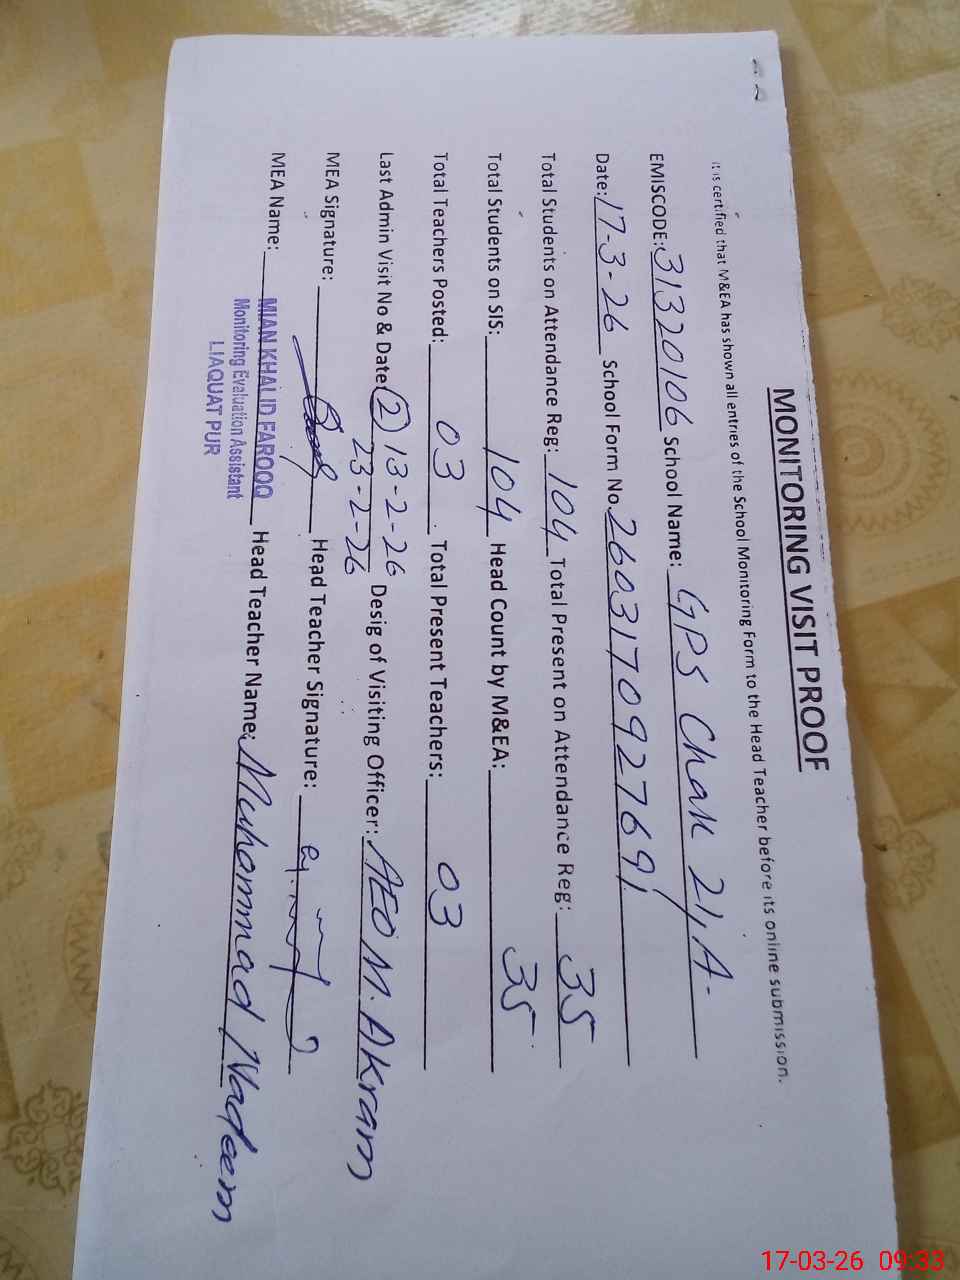 MONITORING VISIT PROOF
It is certified that M&EA has shown all entries of the School Monitoring Form to the Head Teacher before its online submission.
EMISCODE: 31320106 School Name: GPS Chak 21,A-
Date: 17-3-26 School Form No. 260317092769
Total Students on Attendance Reg: 104 Total Present on Attendance Reg: 35
Total Students on SIS: 104 Head Count by M&EA: 35
Total Teachers Posted: 03 Total Present Teachers: 03
Last Admin Visit No & Date: (2) 13-2-26 Desig of Visiting Officer: AEO M. AKram
23-2-26
MEA Signature: Head Teacher Signature:
MEA Name: MIAN KHALID FAROOQ Head Teacher Name: Muhammad Nadeem
Monitoring Evaluation Assistant
LIAQUAT PUR
17-03-26 09:33